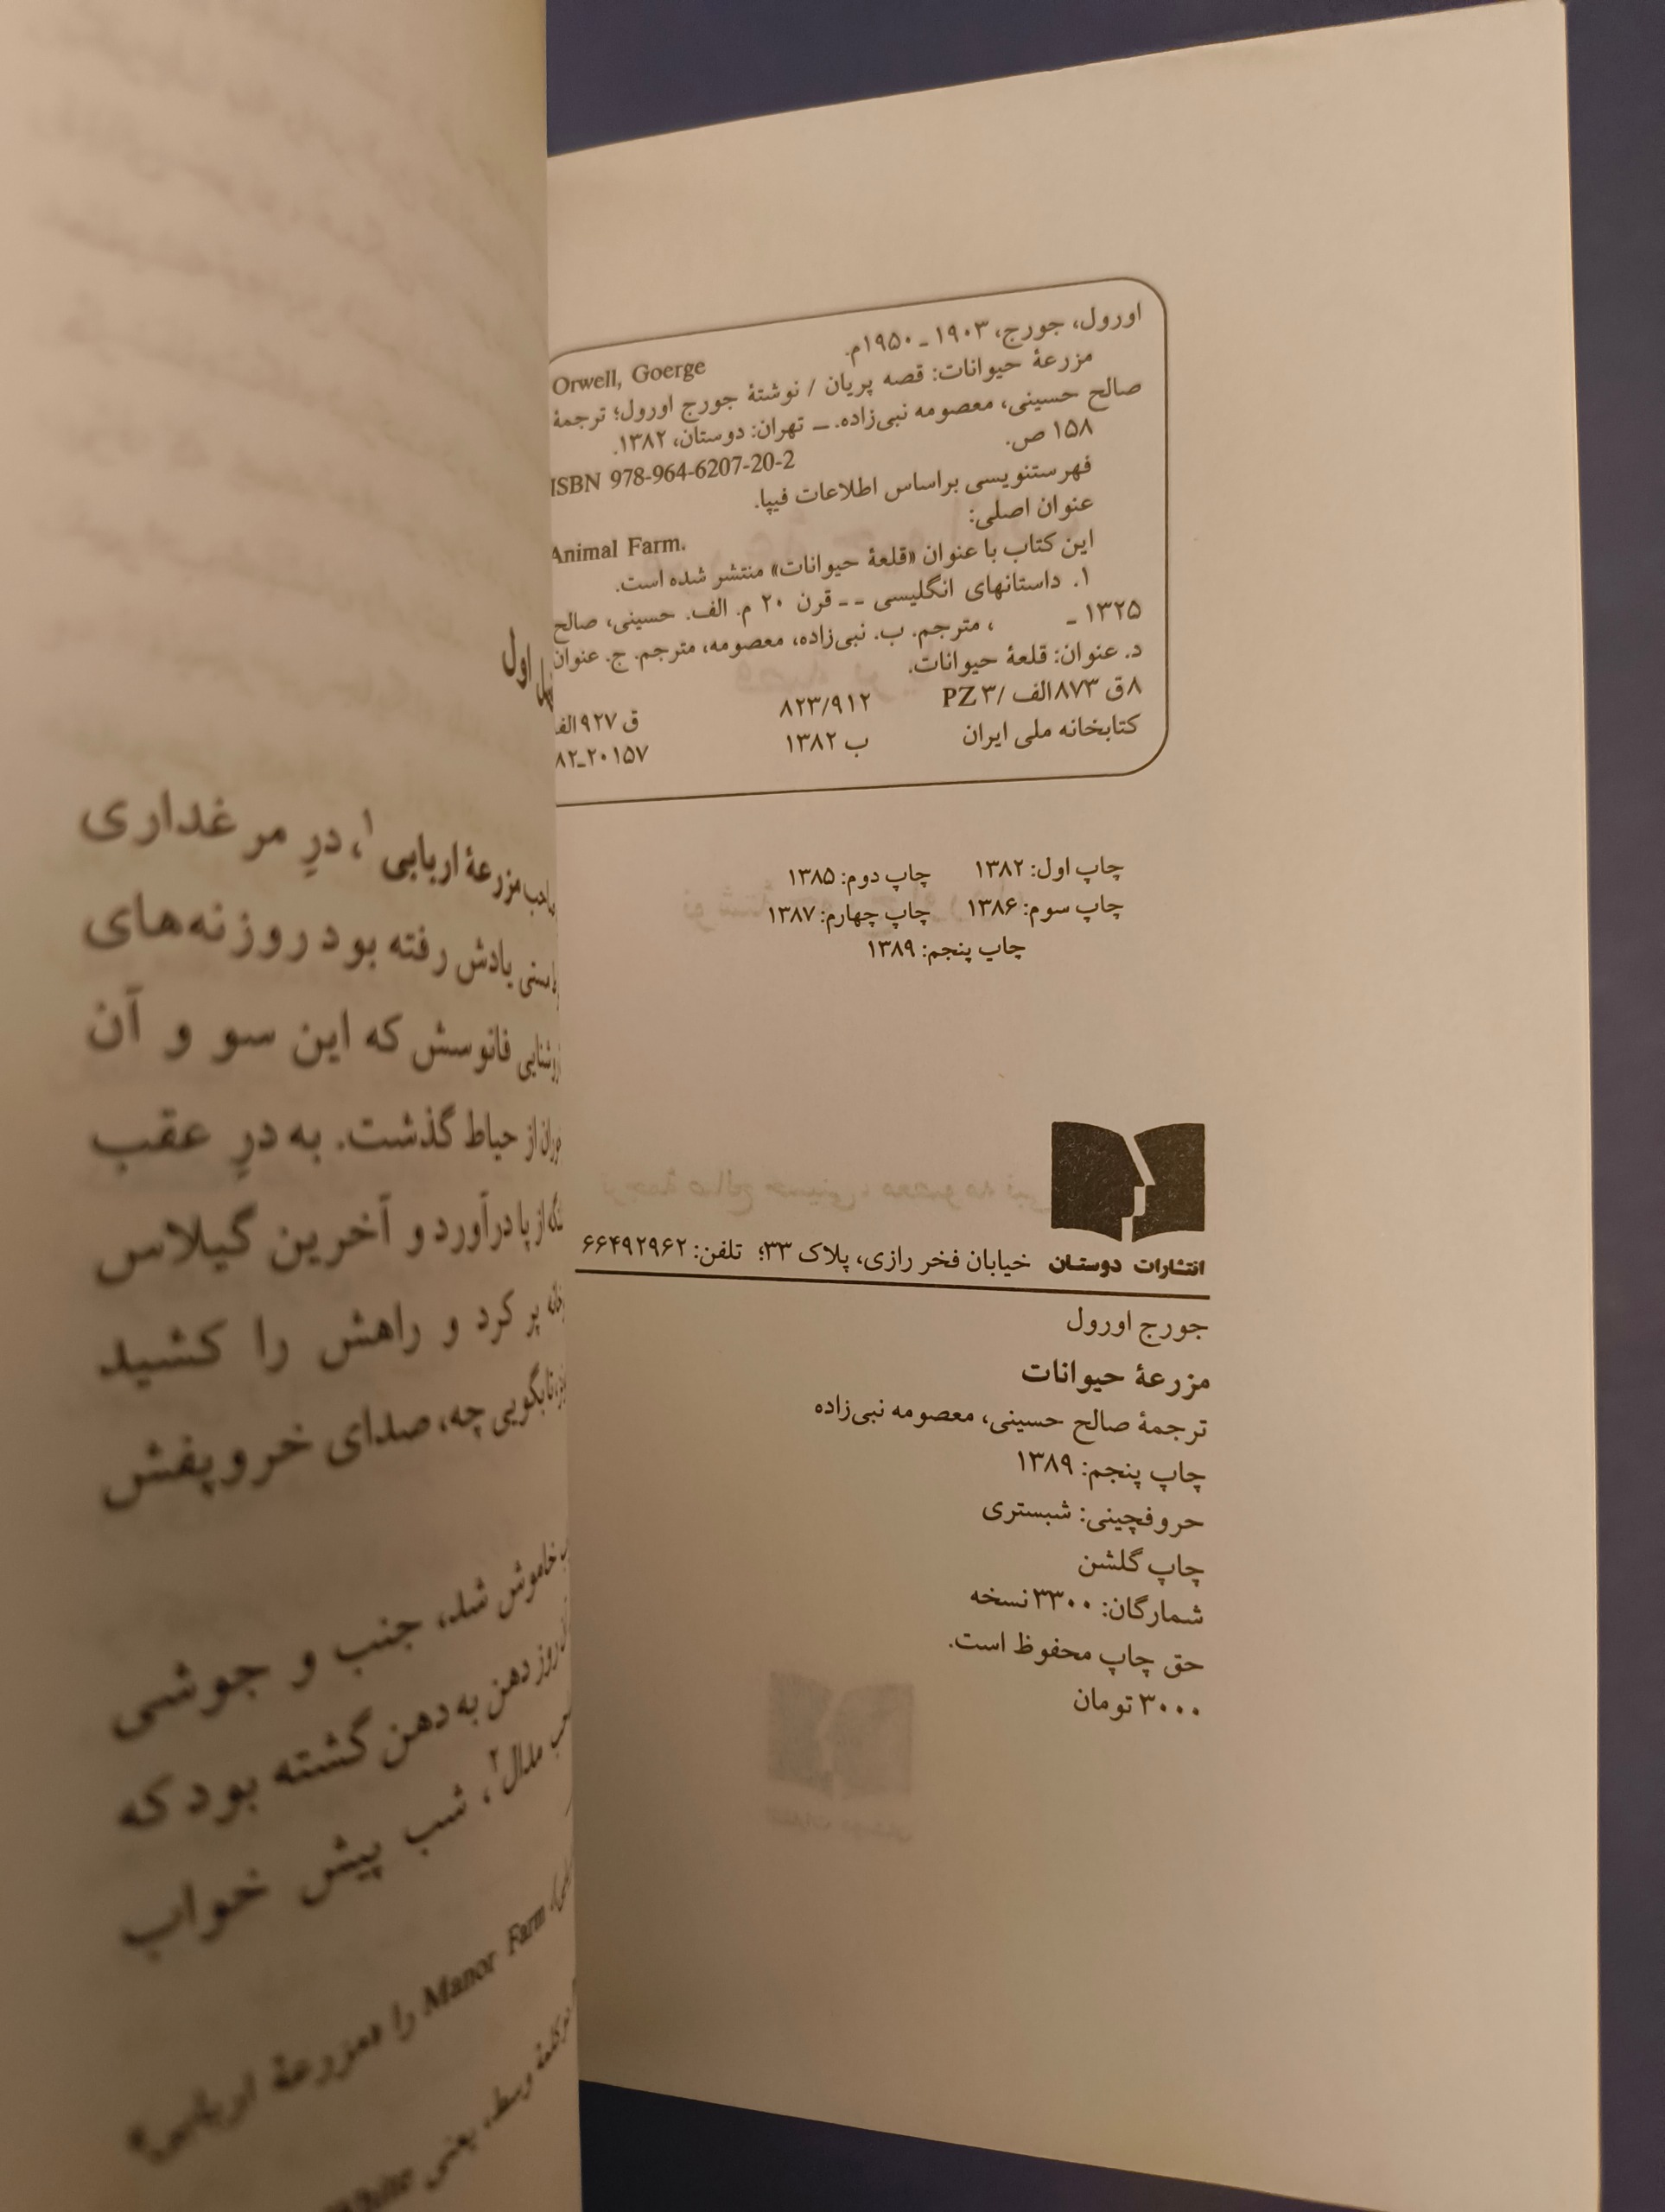 اورول، جورج، ۱۹۰۳ ـ ۱۹۵۰م.
Orwell, Goerge
مزرعهٔ حیوانات: قصه پریان / نوشتهٔ جورج اورول؛ ترجمهٔ
صالح حسینی، معصومه نبی‌زاده. ـ تهران: دوستان، ۱۳۸۲.
۱۵۸ ص.
ISBN 978-964-6207-20-2
فهرستنویسی براساس اطلاعات فیپا.
عنوان اصلی:
Animal Farm.
این کتاب با عنوان «قلعهٔ حیوانات» منتشر شده است.
۱. داستانهای انگلیسی ـ ـ قرن ۲۰ م. الف. حسینی، صالح
۱۳۲۵ ـ ، مترجم. ب. نبی‌زاده، معصومه، مترجم. ج. عنوان
د. عنوان: قلعهٔ حیوانات.
۸ق ۸۷۳الف /PZ ۳ ۸۲۳/۹۱۲ ق ۹۲۷الف
کتابخانه ملی ایران ب ۱۳۸۲ ۸۲ـ۲۰۱۵۷
چاپ اول: ۱۳۸۲ چاپ دوم: ۱۳۸۵
چاپ سوم: ۱۳۸۶ چاپ چهارم: ۱۳۸۷
چاپ پنجم: ۱۳۸۹
انتشارات دوستان خیابان فخر رازی، پلاک ۳۳؛ تلفن: ۶۶۴۹۲۹۶۲
جورج اورول
مزرعهٔ حیوانات
ترجمهٔ صالح حسینی، معصومه نبی‌زاده
چاپ پنجم: ۱۳۸۹
حروفچینی: شبستری
چاپ گلشن
شمارگان: ۳۳۰۰ نسخه
حق چاپ محفوظ است.
۳۰۰۰ تومان
اول
مزرعهٔ اربابی۱، درِ مرغداری
یادش رفته بود روزنه‌های
فانوسش که این سو و آن
از حیاط گذشت. به درِ عقب
از پا درآورد و آخرین گیلاس
پر کرد و راهش را کشید
چه، صدای خروپفش
خاموش شد، جنب و جوشی
روز دهن به دهن گشته بود که
مدال۲، شب پیش خواب
Manor Farm را «مزرعهٔ اربابی»
وسط، یعنی White